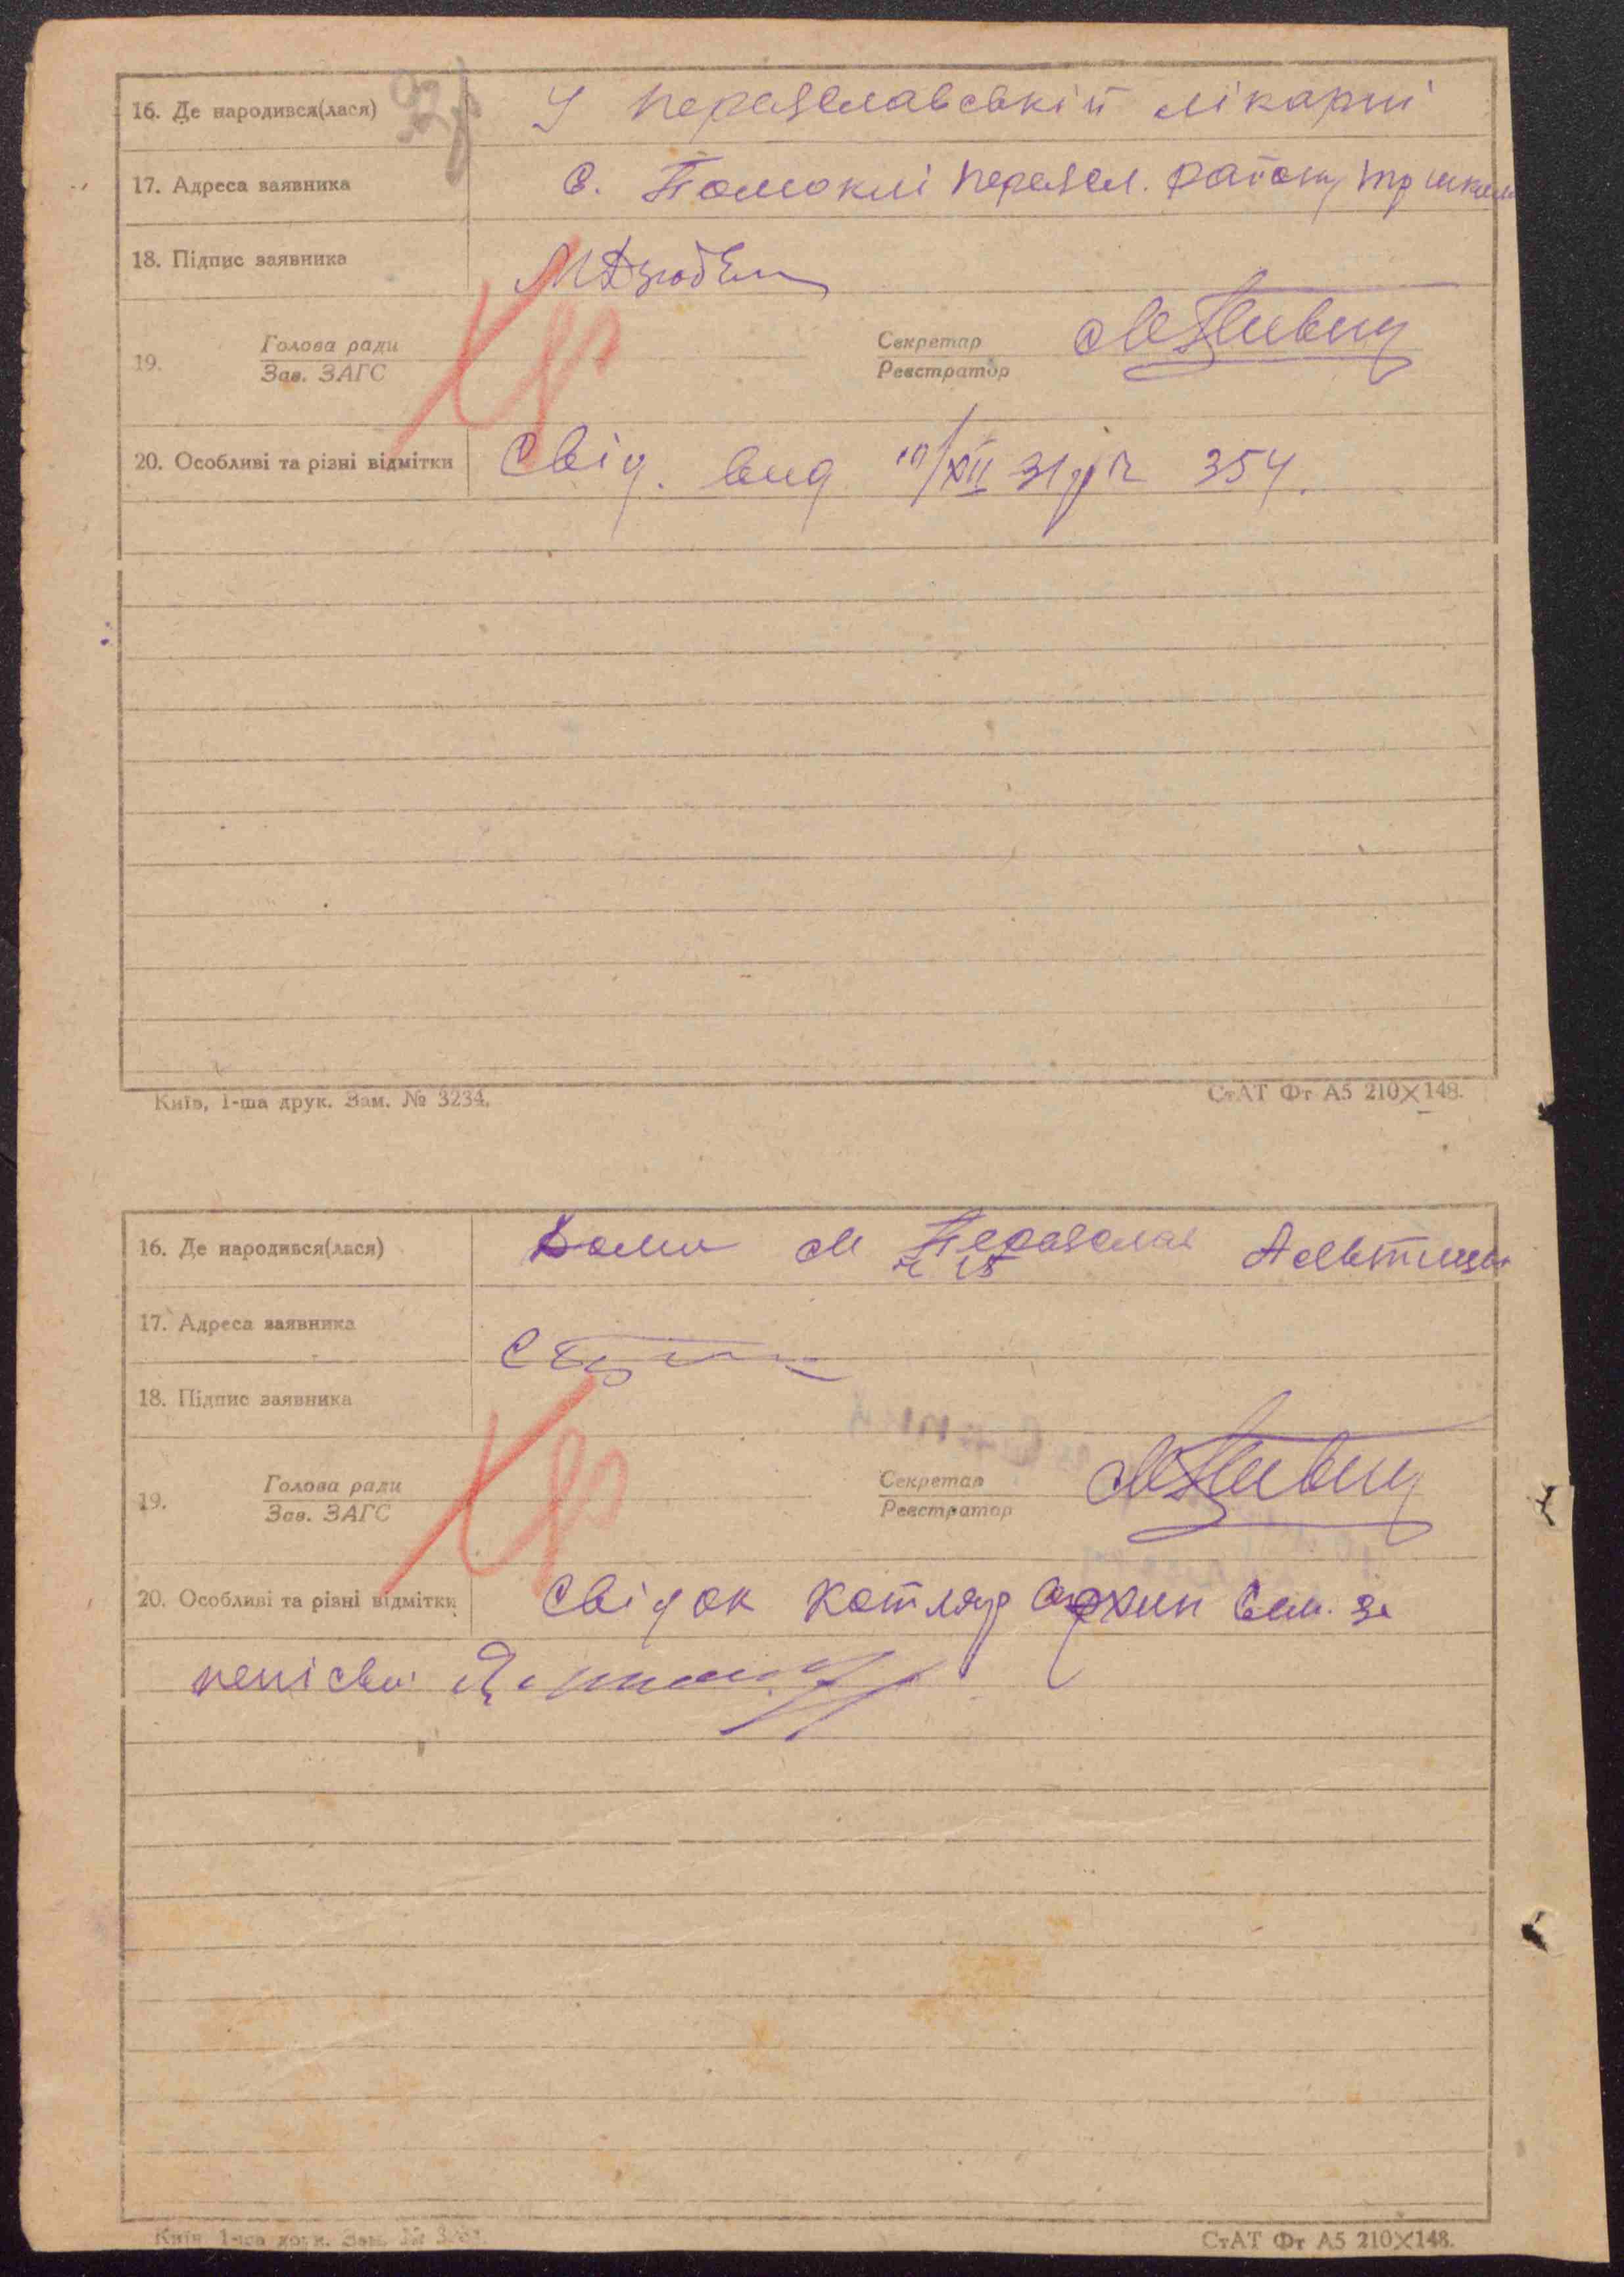 92
16. Де народився(лася) У переяславській лікарні
17. Адреса заявника с. Помоклі переясл. району
18. Підпис заявника
Голова ради Секретар
19.
Зав. ЗАГС Реєстратор
20. Особливі та різні відмітки Свід. вид 10/XII 31 р. № 354.
Київ, 1-ша друк. Зам. № 3234. СтАТ Фт А5 210×148.
16. Де народився(лася) Дома м Переяслав
17. Адреса заявника
18. Підпис заявника
Голова ради Секретар
19.
Зав. ЗАГС Реєстратор
20. Особливі та різні відмітки Свідок Котляр
Київ, 1-ша друк. Зам. № СтАТ Фт А5 210×148.